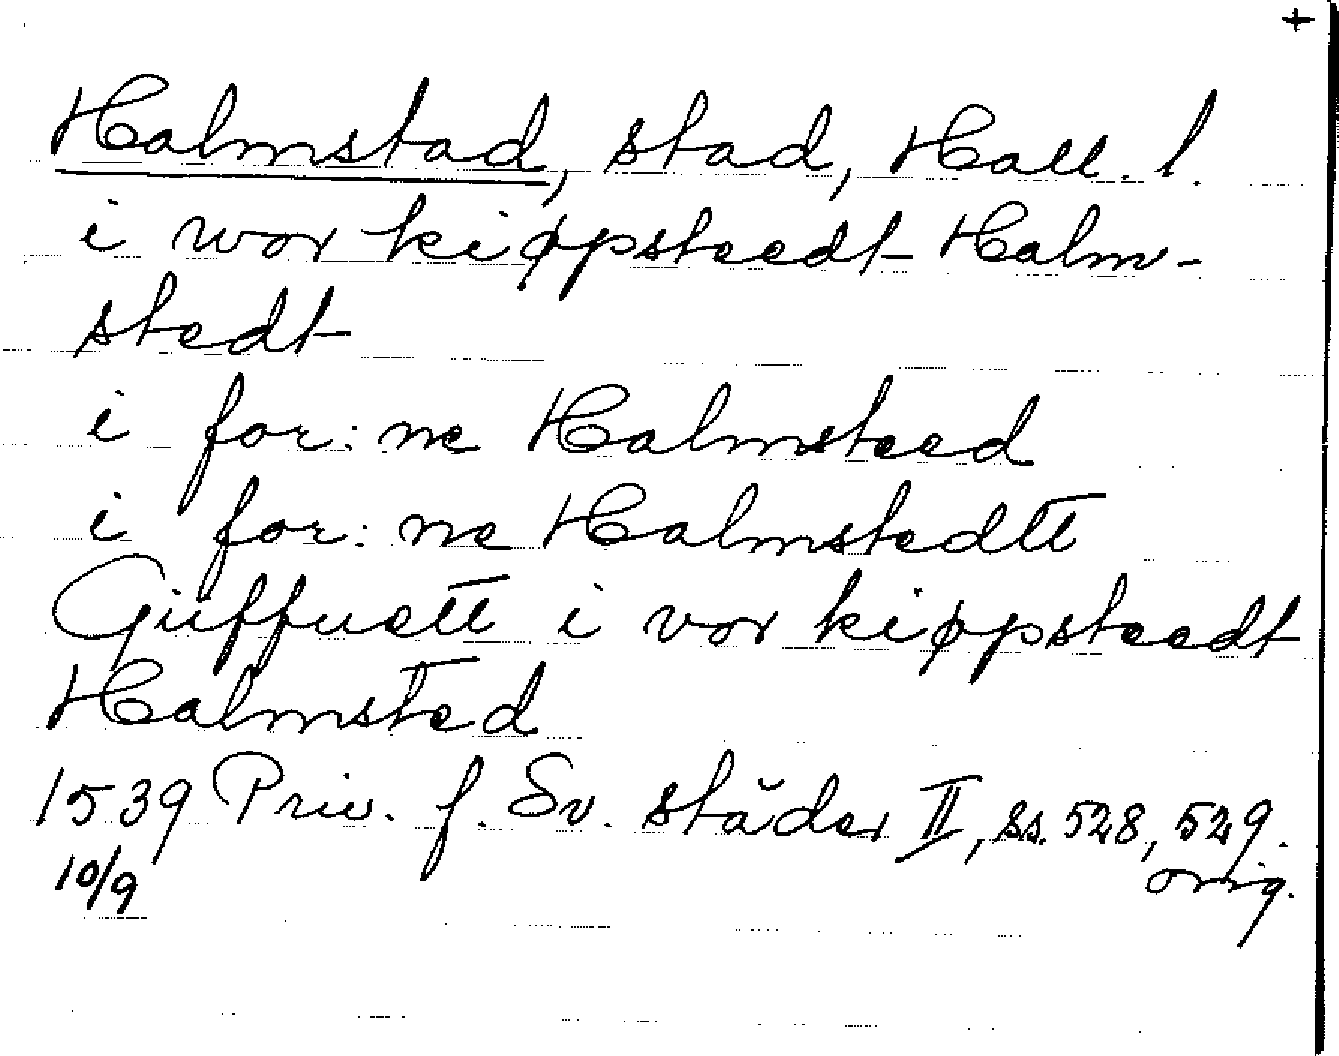 +
Halmstad, stad, Hall. l.
i wor kiøpsteedt Halm-
stedt
i for: ne Halmsteed
i for: ne Halmstedtt
Güffuett i vor kiøpsteedt
Halmsted
1539 Priv. f. Sv. städer II, ss. 528, 529.
10/9 orig.